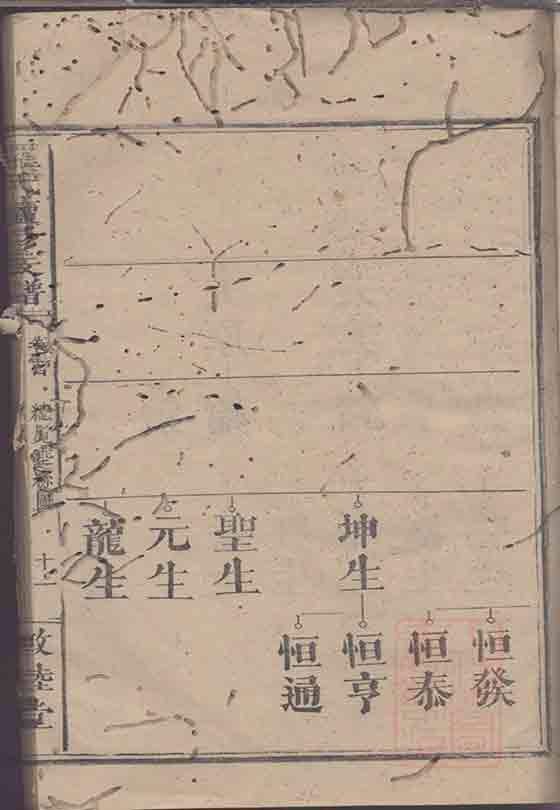 恒發
恒泰
坤生
恒亨
恒通
聖生
元生
龍生
氏續修支譜
卷首
十二
敦睦堂